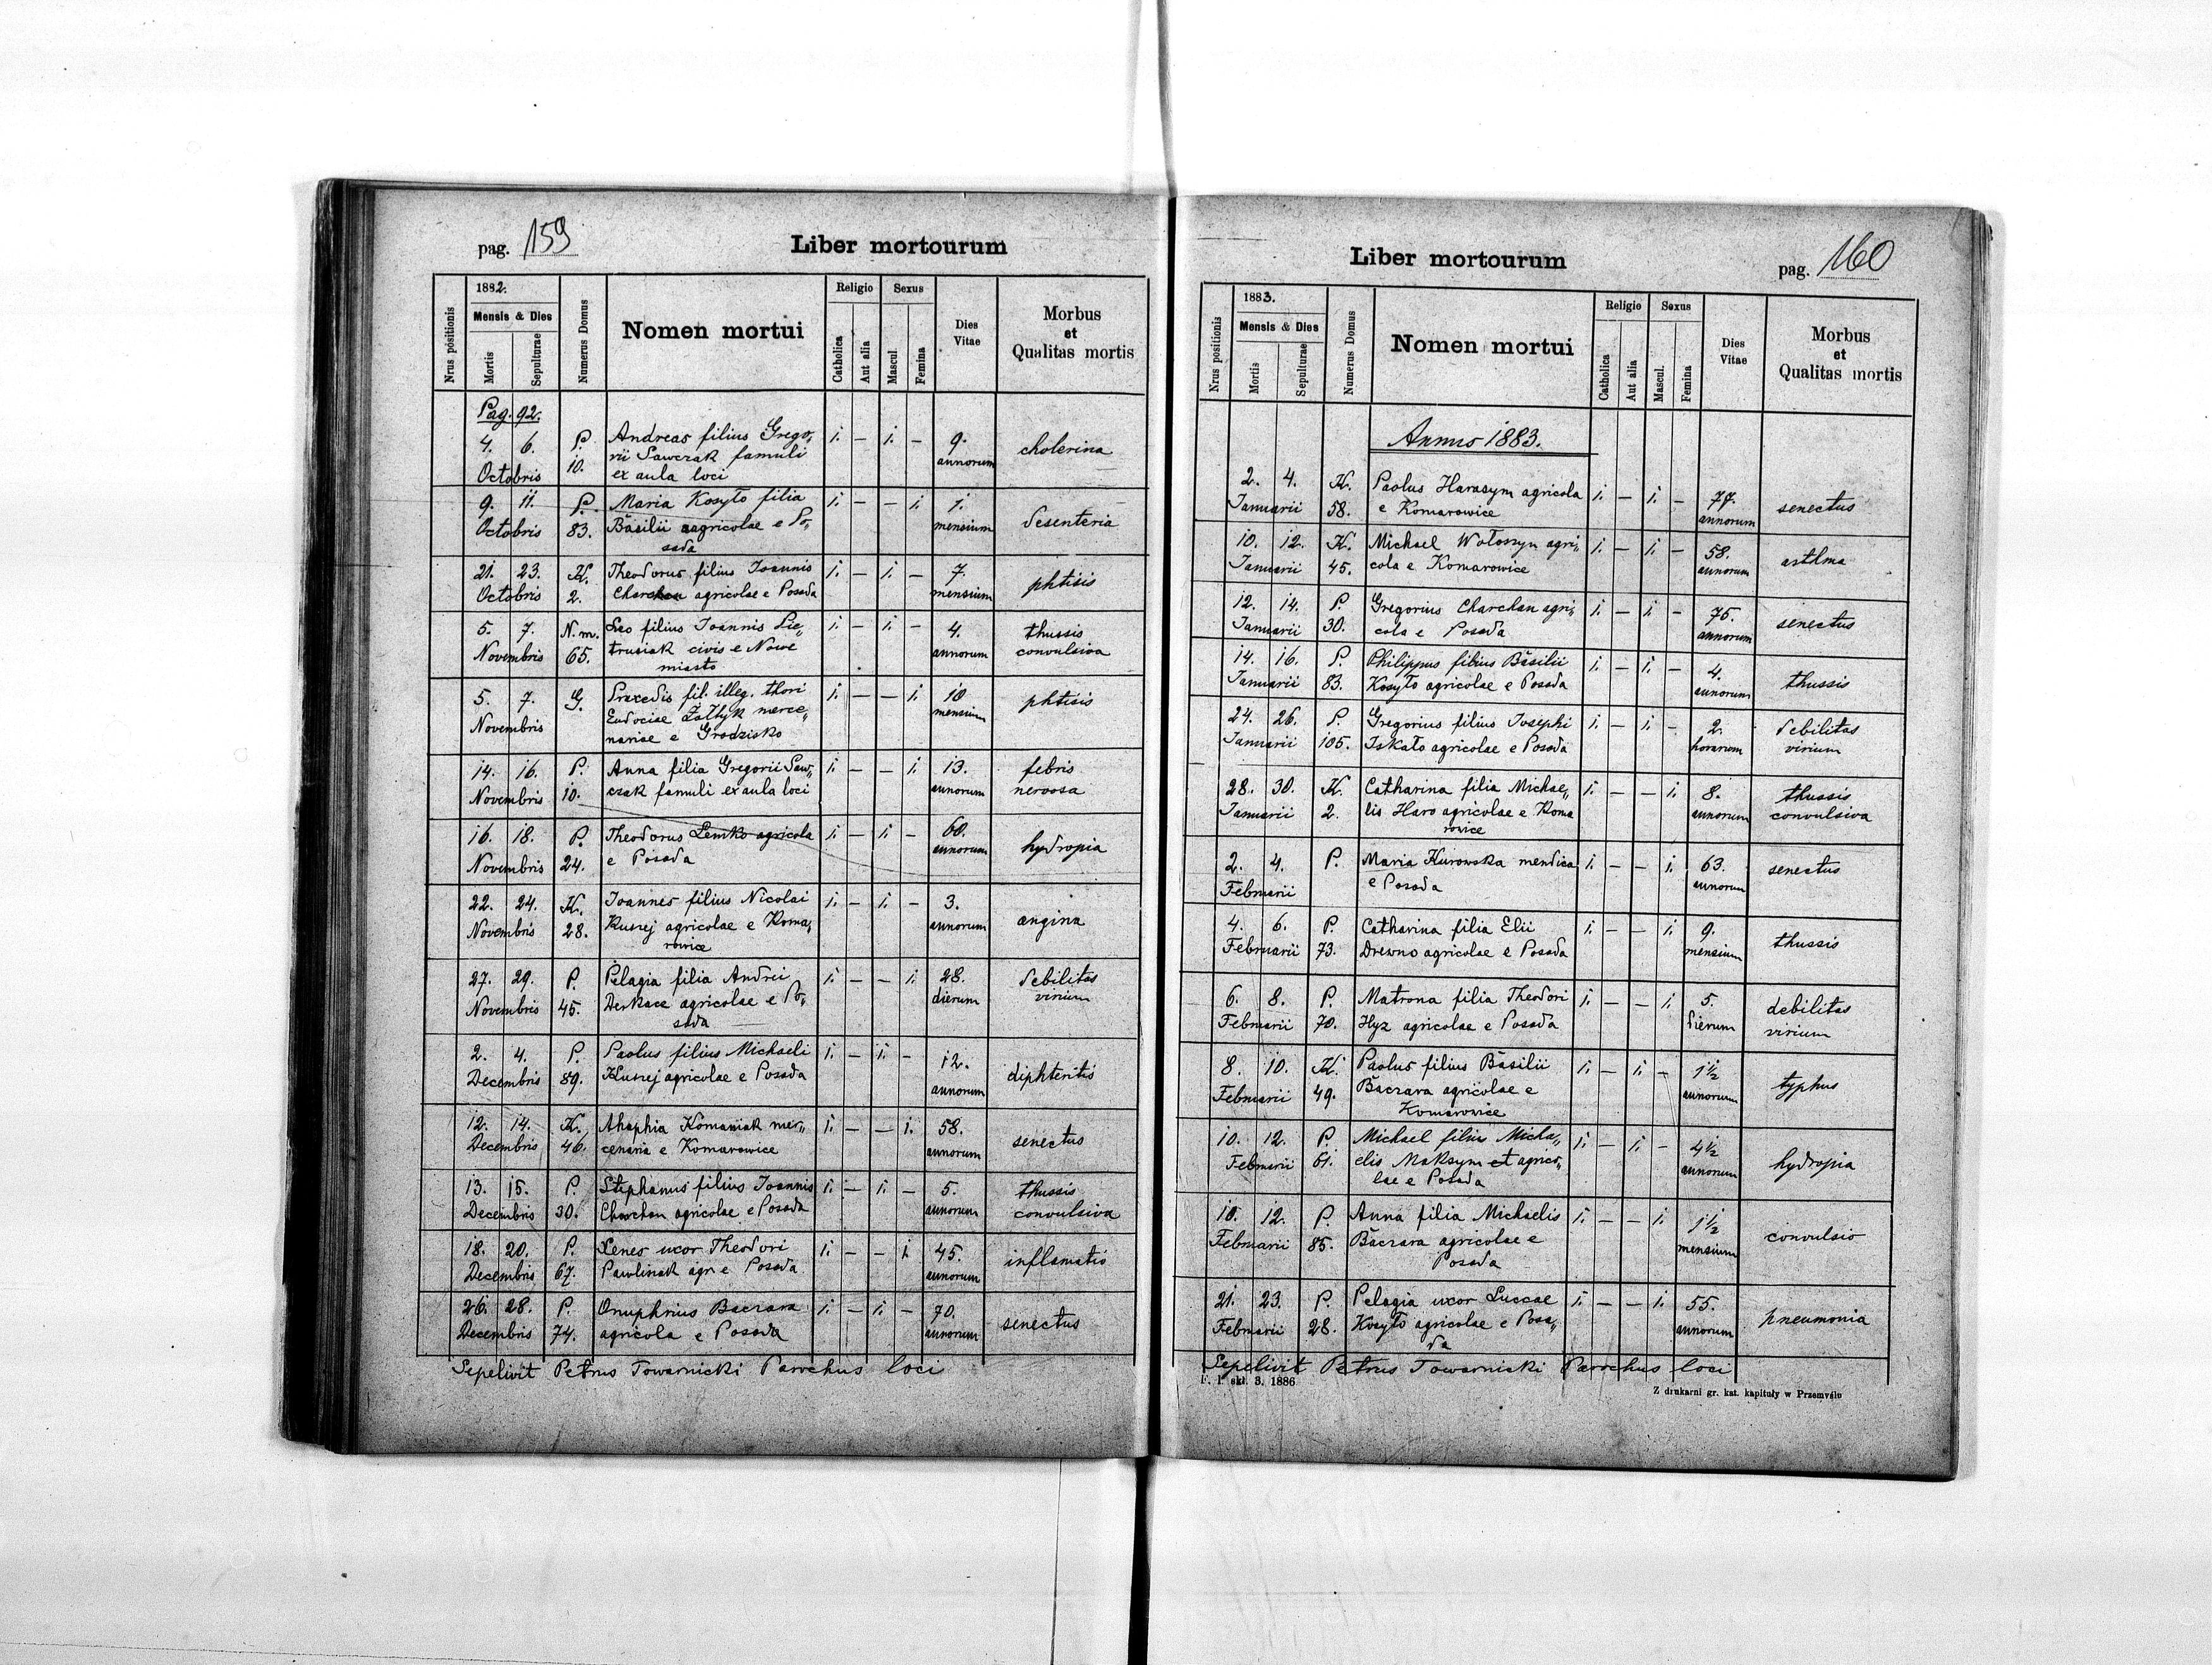 pag. 159
Liber mortourum
Nrus positionis
1882.
Mensis & Dies
Mortis
Sepulturae
Numerus Domus
Nomen mortui
Religio
Catholica
Aut alia
Sexus
Mascul.
Femina
Dies
Vitae
Morbus
et
Qualitas mortis
Pag. 92.
4. 6. P. Andreas filius Grego„ i. – i. – 9. cholerina
Octobris 10. rii Sawczak famuli annorum
ex aula loci
9. 11. P. Maria Kosyło filia i. – – i. 1. desenteria
Octobris 83. Basilii agricolae e Po„ mensium
sada
21. 23. K. Theodorus filius Joannis i. – i. – 7. phtisis
Octobris 2. Charchan agricolae e Posada mensium
5. 7. N. m. Leo filius Joannis Pie„ i. – i. – 4. thussis
Novembris 65. trusiak civis e Nowe annorum convulsiva
miasto
5. 7. G. Praxedis fil. illeg. thori i. – – i. 10 phtisis
Novembris Eudociae Żołtyk merce„ mensium
nariae e Grodzisko
14. 16. P. Anna filia Gregorii Saw„ i. – – i. 13. febris
Novembris 10. czak famuli ex aula loci annorum nervosa
16. 18. P. Theodorus Lemko agricola i. – i. – 60. hydropia
Novembris 24. e Posada annorum
22. 24. K. Joannes filius Nicolai i. – i. – 3. angina
Novembris 28. Kuszej agricolae e Koma„ annorum
rowice
27. 29. P. Pelagia filia Andrei i. – – i. 28. debilitas
Novembris 45. Derkacz agricolae e Po„ dierum virium
sada
2. 4. P. Paolus filius Michaeli i. – i. – 12. diphteritis
Decembris 89. Kuszej agricolae e Posada annorum
12. 14. K. Ahaphia Komaniak mer„ i. – – i. 58. senectus
Decembris 46. cenaria e Komarowice annorum
13. 15. P. Stephanus filius Joannis i. – i. – 5. thussis
Decembris 30. Charchan agricolae e Posada annorum convulsiva
18. 20. P. Xenes uxor Theodori i. – – i. 45. inflamatio
Decembris 67. Pawlinak agr e Posada annorum
26. 28. P. Onuphrius Baczara i. – i. – 70. senectus
Decembris 74. agricola e Posada annorum
Sepelivit Petrus Towarnicki Parochus loci
Liber mortourum
pag. 160
Nrus positionis
1883.
Mensis & Dies
Mortis
Sepulturae
Numerus Domus
Nomen mortui
Religio
Catholica
Aut alia
Sexus
Mascul.
Femina
Dies
Vitae
Morbus
et
Qualitas mortis
Annus 1883.
2. 4. K. Paolus Harasym agricola i. – i. – 77. senectus
Januarii 58. e Komarowice annorum
10. 12. K. Michael Wołoszyn agri„ i. – i. – 58. asthma
Januarii 45. cola e Komarowice annorum
12. 14. P. Gregorius Charchan agri„ i. – i. – 75. senectus
Januarii 30. cola e Posada annorum
14. 16. P. Philippus filius Basilii i. – i. – 4. thussis
Januarii 83. Kosyło agricolae e Posada annorum
24. 26. P. Gregorius filius Josephi i. – i. – 2. debilitas
Januarii 105. Iskało agricolae e Posada horarum virium
28. 30. K. Catharina filia Michae„ i. – – i. 8. thussis
Januarii 2. lis Haro agricolae e Koma annorum convulsiva
rowice
2. 4. P. Maria Kurowska mendica i. – – i. 63. senectus
Februarii e Posada annorum
4. 6. P. Catharina filia Elii i. – – i. 9. thussis
Februarii 73. Drewno agricolae e Posada mensium
6. 8. P. Matrona filia Theodori i. – – i. 5. debilitas
Februarii 70. Hyz agricolae e Posada dierum virium
8. 10. K. Paolus filius Basilii i. – i. – 1½ typhus
Februarii 49. Baczara agricolae e annorum
Komarowice
10. 12. P. Michael filius Micha„ i. – i. – 4½ hydropia
Februarii 61. elis Maksym et agrico„ annorum
lae e Posada
10. 12. P. Anna filia Michaelis i. – – i. 1½ convulsio
Februarii 85. Baczara agricolae e mensium
Posada
21. 23. P. Pelagia uxor Luccae i. – – i. 55. pneumonia
Februarii 28. Kosyło agricolae e Posa„ annorum
da
Sepelivit Petrus Towarnicki Parochus loci
F. I. skł. 3. 1886
Z drukarni gr. kat. kapituły w Przemyślu